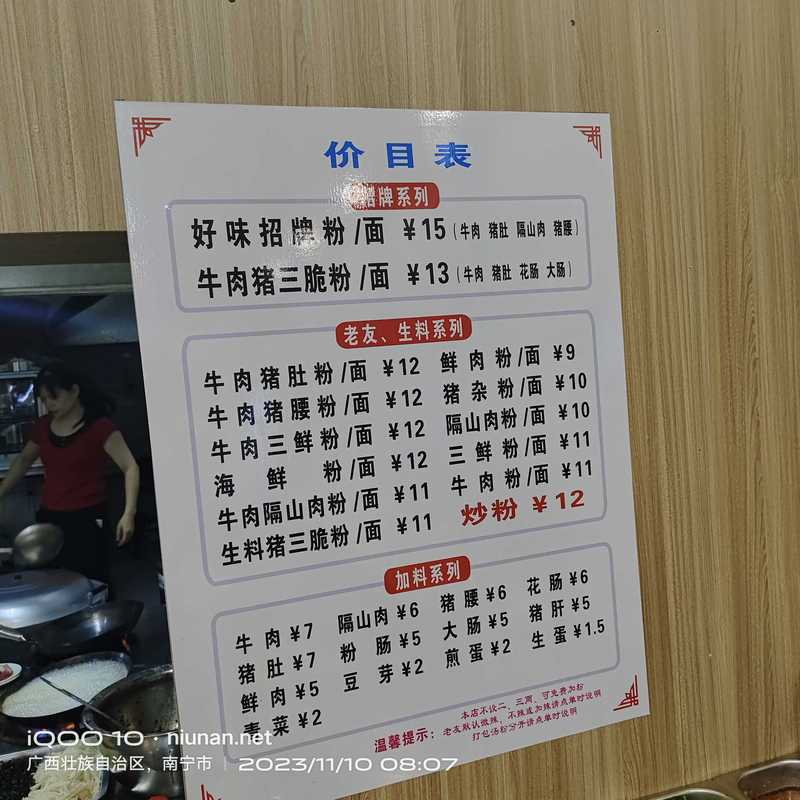 价目表
招牌系列
好味招牌粉/面 ¥15(牛肉 猪肚 隔山肉 猪腰)
牛肉猪三脆粉/面 ¥13(牛肉 猪肚 花肠 大肠)
老友、生料系列
牛肉猪肚粉/面 ¥12 鲜肉粉/面 ¥9
牛肉猪腰粉/面 ¥12 猪杂粉/面 ¥10
牛肉三鲜粉/面 ¥12 隔山肉粉/面 ¥10
海鲜粉/面 ¥12 三鲜粉/面 ¥11
牛肉隔山肉粉/面 ¥11 牛肉粉/面 ¥11
生料猪三脆粉/面 ¥11 炒粉 ¥12
加料系列
牛肉 ¥7 隔山肉 ¥6 猪腰 ¥6 花肠 ¥6
猪肚 ¥7 粉肠 ¥5 大肠 ¥5 猪肝 ¥5
鲜肉 ¥5 豆芽 ¥2 煎蛋 ¥2 生蛋 ¥1.5
青菜 ¥2
本店不设二、三两、可免费加粉
温馨提示：老友默认微辣，不辣或加辣请点单时说明
打包汤粉分开请点单时说明
iQOO 10 · niunan.net
广西壮族自治区，南宁市 | 2023/11/10 08:07